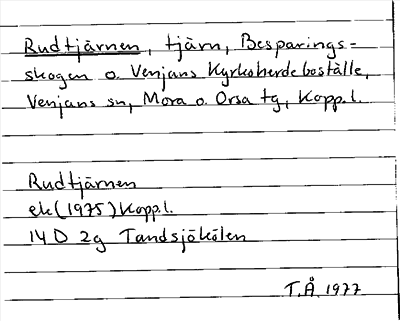 Rudtjärnen, tjärn, Besparings=
skogen o. Venjans Kyrkoherdeboställe,
Venjans sn, Mora o. Orsa tg, Kopp.l.
Rudtjärnen
ek (1975) Kopp.l.
14 D 2g Tandsjökölen
T.Å. 1977